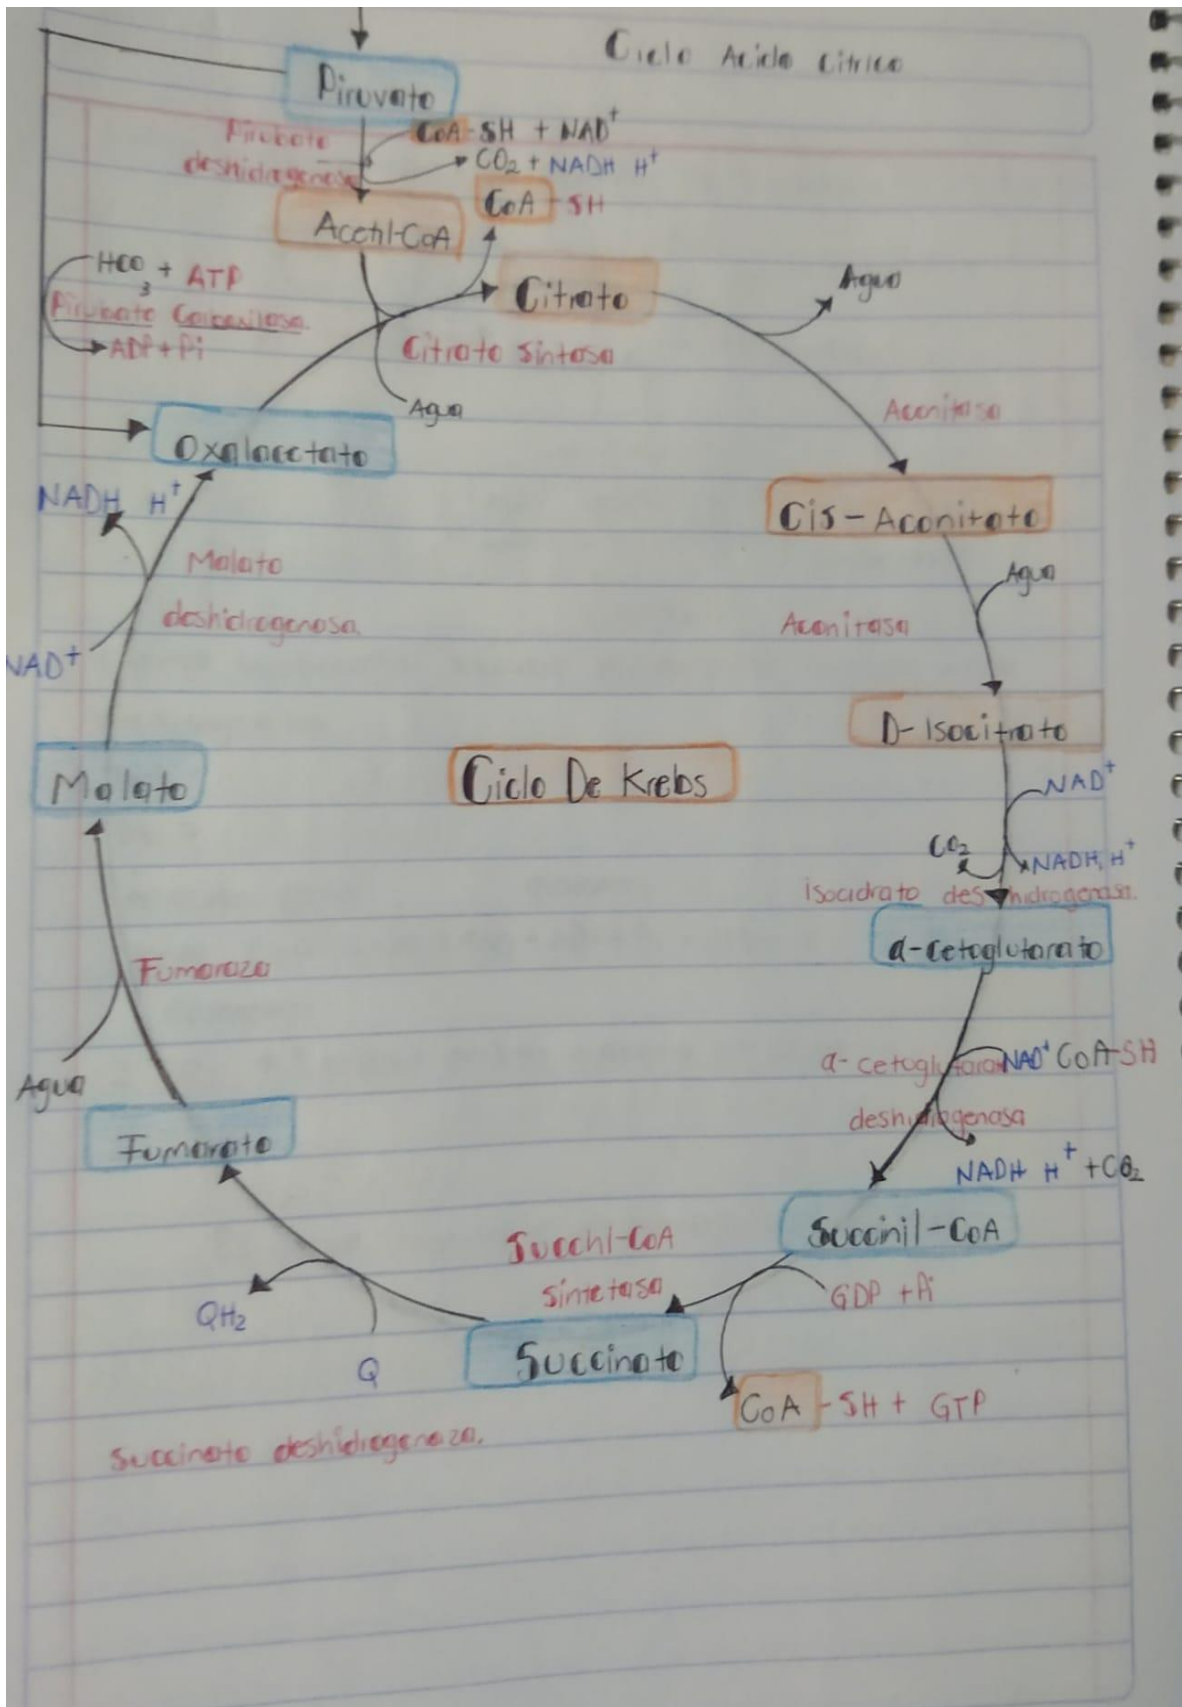 Ciclo Acido Citrico
Piruvato
CoA-SH + NAD+
Pirubato
deshidrogenasa
CO2 + NADH H+
CoA-SH
Acetil-CoA
HCO3 + ATP
Pirubato Carboxilasa.
ADP + Pi
Citrato
Agua
Citrato Sintasa
Agua
Aconitasa
Oxalacetato
NADH H+
Cis-Aconitato
Malato
deshidrogenasa.
NAD+
Agua
Aconitasa
D-Isocitrato
Malato
Ciclo De Krebs
NAD+
CO2
NADH, H+
isocidrato deshidrogenasa.
α-cetoglutarato
Fumaraza
Agua
α-cetoglutarato
NAD+ CoA-SH
deshidrogenasa
NADH H+ + CO2
Fumarato
Succinil-CoA
Sintetasa
GDP + Pi
QH2
Q
Succinato
CoA-SH + GTP
Succinato deshidrogenaza.